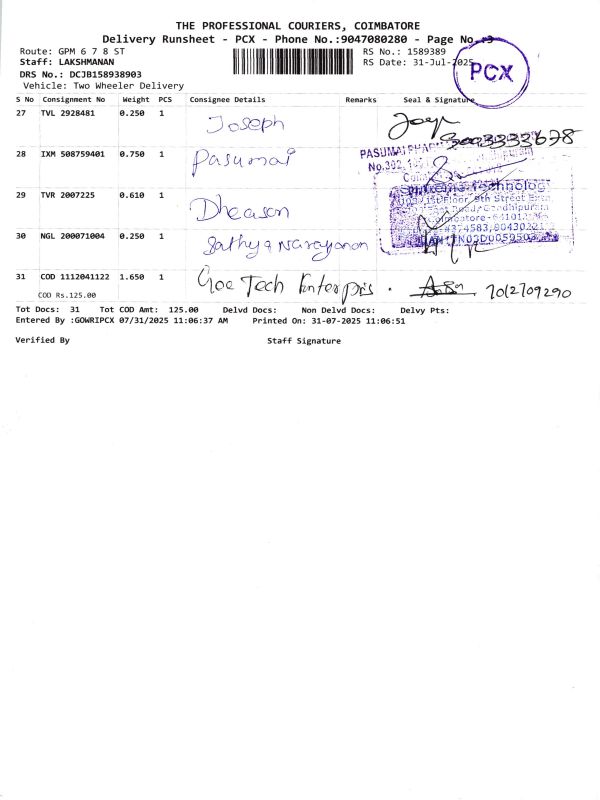 THE PROFESSIONAL COURIERS, COIMBATORE
Delivery Runsheet - PCX - Phone No.:9047080280 - Page No.:3
Route: GPM 6 7 8 ST
RS No.: 1589389
Staff: LAKSHMANAN
RS Date: 31-Jul-2025
PCX
DRS No.: DCJB158938903
Vehicle: Two Wheeler Delivery
S No Consignment No Weight PCS Consignee Details Remarks Seal & Signature
27 TVL 2928481 0.250 1 Joseph
28 IXM 508759401 0.750 1 Pasumai
PASUMAI
29 TVR 2007225 0.610 1 Dheason
Technology
1st Floor, 9th Street Extn,
Road, Gandhipuram
Coimbatore-641012
30 NGL 200071004 0.250 1 Sathya Narayanan
31 COD 1112041122 1.650 1 Goe Tech Enterpris.
COD Rs.125.00
Tot Docs: 31 Tot COD Amt: 125.00 Delvd Docs: Non Delvd Docs: Delvy Pts:
Entered By :GOWRIPCX 07/31/2025 11:06:37 AM Printed On: 31-07-2025 11:06:51
Verified By Staff Signature